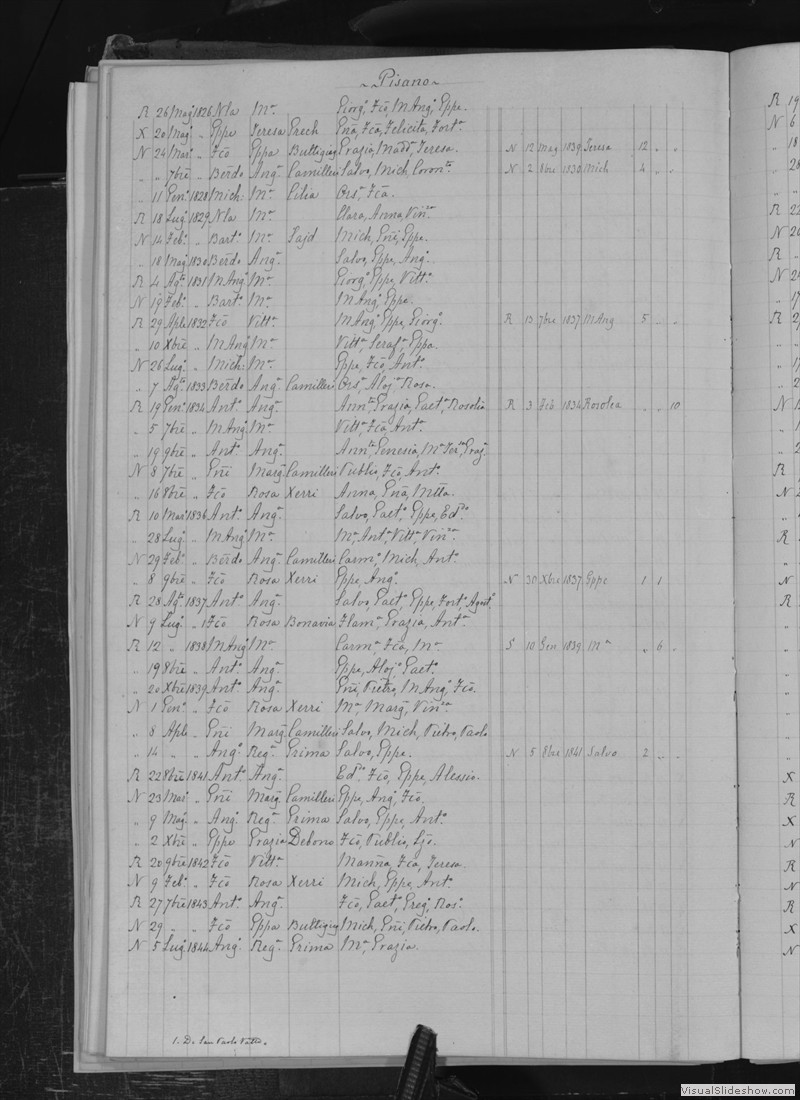 ~ Pisano ~
R 26 Mag° 1826 Nla Mᵃ Giorg°, Fcō, M Ang°, Gppe.
X 20 Mag° „ Gppe Teresa Grech Enā, Fcā, Felicita, Fortᵃ
N 24 Mar° „ Fcō Gppa Buttigieg Grazia, Madᵃ, Teresa. N 12 Mag 1839 Teresa 12 „ „
„ „ 7bre „ Berdo Angᵃ Camilleri Salvo, Mich, Coronᵗᵃ N 2 8bre 1830 Mich 4 „ „
„ 11 Gen° 1828 Mich: Mᵃ Cilia Orsᵃ, Fcā.
R 18 Lug° 1829 Nla Mᵃ Clara, Anna, Vinᶻᵃ
N 14 Feb° „ Bart° Mᵃ Sajd Mich, Enī, Gppe.
„ 18 Mag° 1830 Berdo Angᵃ Salvo, Gppe, Ang°
R 4 Ag° 1831 M Ang° Mᵃ Giorg°, Gppe, Vittᵃ
N 19 Feb° „ Bart° Mᵃ M Ang°, Gppe.
R 29 Aple 1832 Fcō Vittᵃ M Ang°, Gppe, Giorg° R 13 7bre 1837 M Ang 5 „ „
„ 10 Xbre „ M Ang° Mᵃ Vittᵃ, Serafᵃ, Gppa.
N 26 Lug° „ Mich: Mᵃ Gppe, Fcō, Ant°
„ 7 Ag° 1833 Berdo Angᵃ Camilleri Orsᵃ, Alojᵃ, Rosa.
R 19 Gen° 1834 Ant° Angᵃ Annᵗᵃ, Grazia, Gaetᵃ, Rosolia R 3 Fcō 1834 Rosolea „ „ 10
„ 5 7bre „ M Ang° Mᵃ Vittᵃ, Fcā, Antᵃ
„ 19 9bre „ Ant° Angᵃ Annᵗᵃ, Genesia, Mᵃ Terˢᵃ, Grajᵃ
N 8 7bre „ Enī Margᵃ Camilleri Publio, Fcō, Ant°
„ 16 8bre „ Fcō Rosa Xerri Anna, Enā, Mttā.
R 10 Mar° 1836 Ant° Angᵃ Salvo, Gaet°, Gppe, Edᵈ°
„ 28 Lug° „ M Ang° Mᵃ Mᵃ Antᵃ Vittᵃ Vinᶻᵃ
N 29 Feb° „ Berdo Angᵃ Camilleri Carm°, Mich, Ant°
„ 8 9bre „ Fcō Rosa Xerri Gppe, Ang° N 30 Xbre 1837 Gppe 1 1
R 28 Ag° 1837 Ant° Angᵃ Salvo, Gaet°, Gppe, Fort°, Agost°
N 9 Lug° „ Fcō Rosa Bonavia Flamᵃ, Grazia, Antᵃ
R 12 „ 1838 M Ang° Mᵃ Carmᵃ, Fcā, Mᵃ S 10 Gen 1839 Mᵃ „ 6 „
„ 19 8bre „ Ant° Angᵃ Gppe, Aloj°, Gaet°
„ 20 Xbre 1839 Ant° Angᵃ Enī, Pietro, M Ang°, Fcō.
N 1 Gen° „ Fcō Rosa Xerri Mᵃ, Margᵃ, Vinᶻᵃ
„ 8 Aple „ Enī Margᵃ Camilleri Salvo, Mich, Pietro, Paolo
„ 14 „ „ Ang° Regᵃ Grima Salvo, Gppe. N 5 8bre 1841 Salvo 2 „ „
R 22 8bre 1841 Ant° Angᵃ Edᵈ°, Fcō, Gppe, Alessio.
N 23 Mar° „ Enī Margᵃ Camilleri Gppe, Ang°, Fcō.
„ 9 Mag° „ Ang° Regᵃ Grima Salvo, Gppe, Ant°
„ 2 Xbre „ Gppe Grazia Debono Fcō, Publio,
R 20 9bre 1842 Fcō Vittᵃ Manña, Fcā, Teresa.
N 9 Feb° „ Fcō Rosa Xerri Mich, Gppe, Ant°
R 27 7bre 1843 Ant° Angᵃ Fcō, Gaet°, Greg°, Ros°
N 29 „ „ Fcō Gppa Buttigieg Mich, Enī, Pietro, Paolo.
N 5 Lug° 1844 Ang° Regᵃ Grima Mᵃ, Grazia.
VisualSlideshow.com